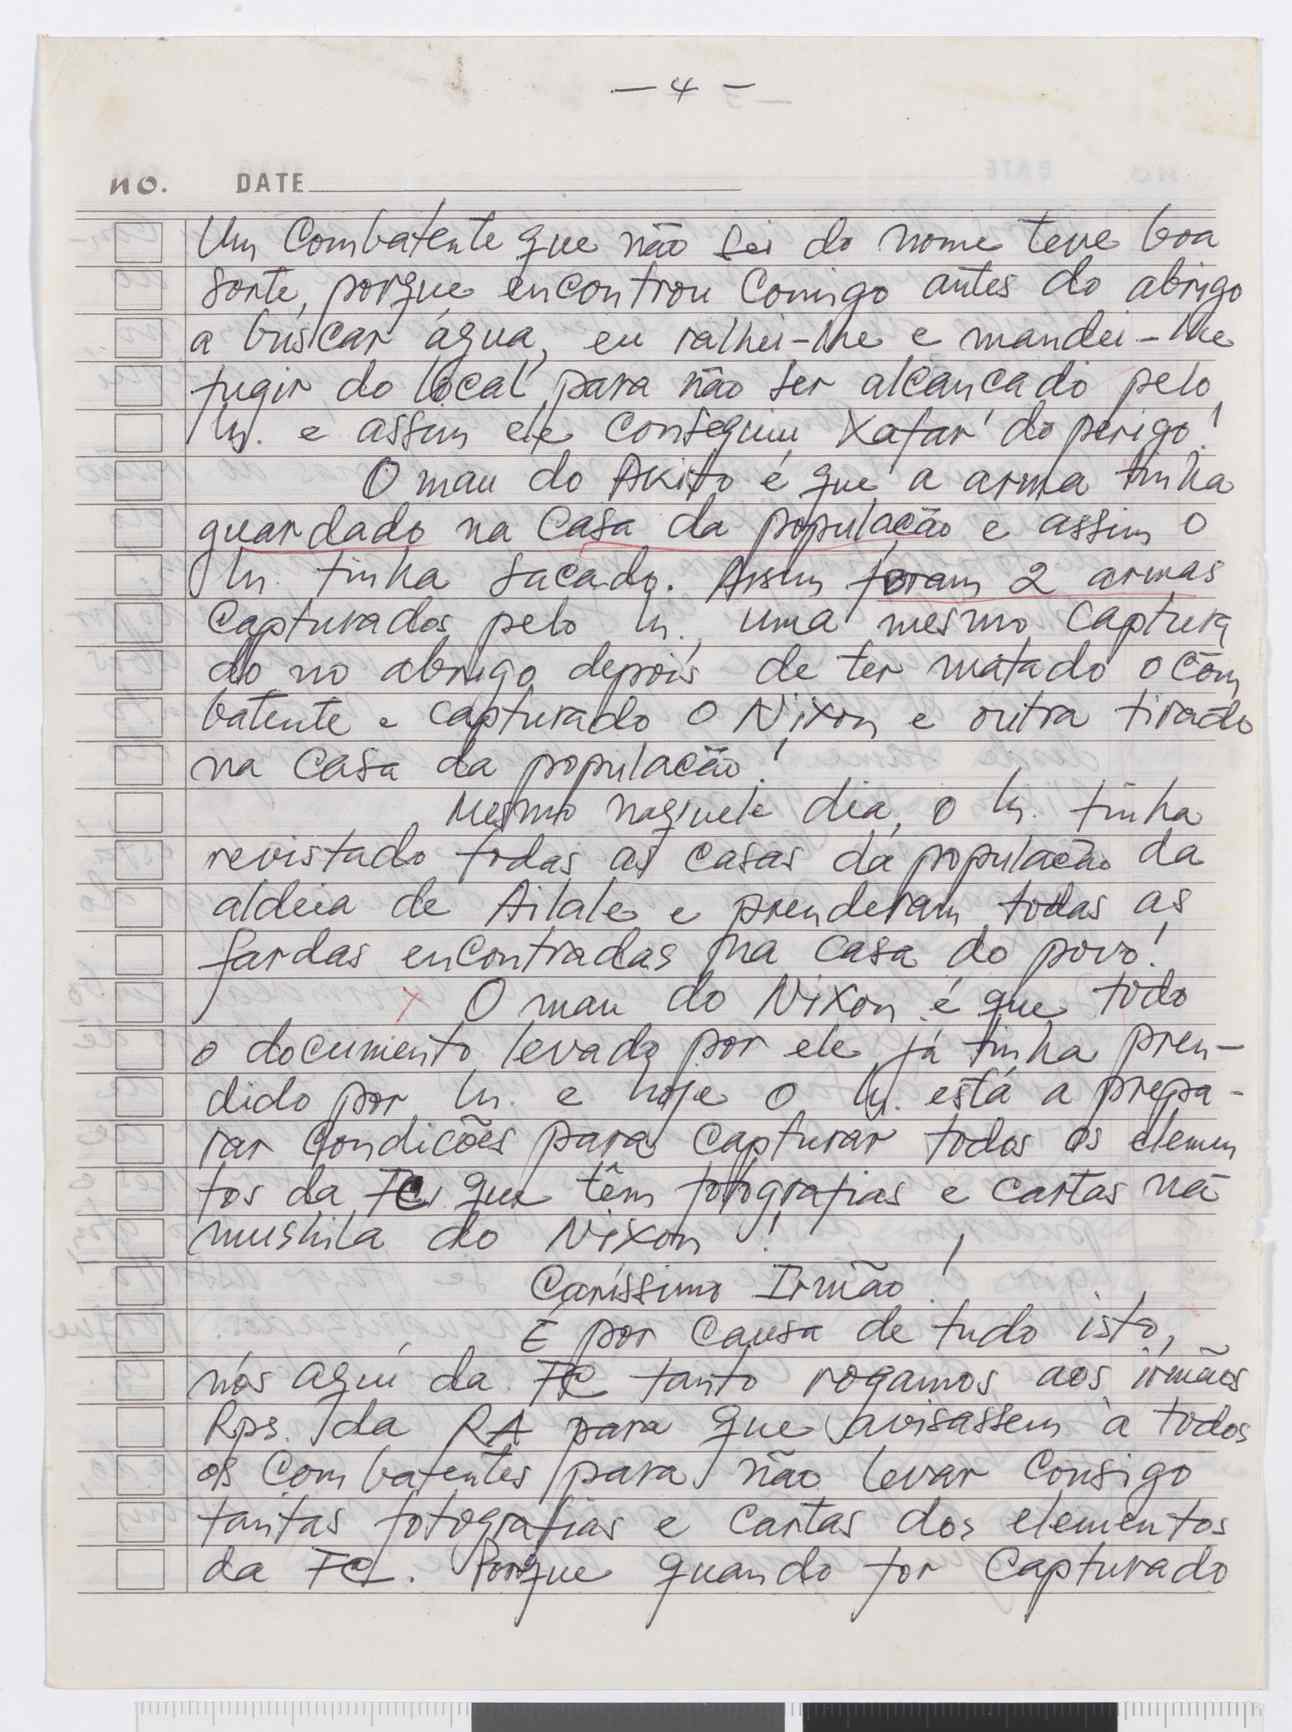 — 4 —
NO. DATE
Um Combatente que não sei do nome teve boa
sorte, porque encontrou Comigo antes do abrigo
a buscar água, eu ralhei-lhe e mandei-lhe
fugir do local para não ser alcançado pelo
In. e assim ele Conseguiu Xafar do perigo!
O mau do Akito é que a arma tinha
guardado na Casa da população e assim o
In. tinha sacado. Assim foram 2 armas
Capturados pelo In., uma mesmo captura
do no abrigo depois de ter matado o com
batente e capturado o Nixon e outra tirado
na Casa da população!
Mesmo naquele dia, o In. tinha
revistado todas as casas da população da
aldeia de Ailale e prenderam todas as
fardas encontradas na casa do povo!
x O mau do Nixon é que todo
o documento levado por ele já tinha pren-
dido por In. e hoje o In. está a prepa-
rar Condições para Capturar todos os elemen
tos da FC. que têm fotografias e cartas na
mushila do Nixon!
Caríssimo Irmão!
É por Causa de tudo isto,
nós aqui da FC tanto rogamos aos irmãos
Rps. da RA para que avisassem à todos
os Combatentes para não levar Consigo
tantas fotografias e cartas dos elementos
da FC. Porque quando for Capturado